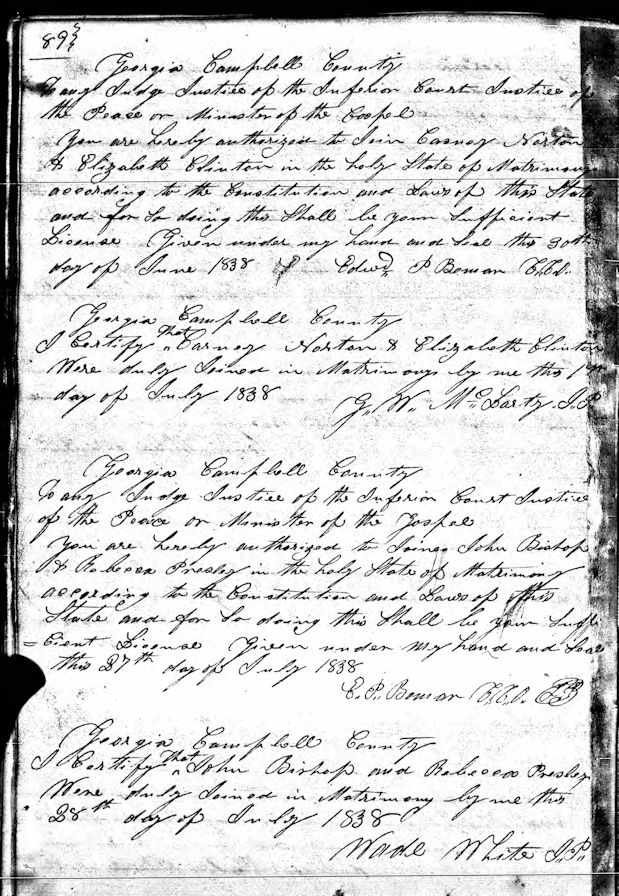 89
Georgia Campbell County
To any Judge Justice of the Inferior Court Justice of
the Peace or Minister of the Gospel
You are hereby authorized to Join Carney Norton
& Elizabeth Clinton in the holy State of Matrimony
according to the Constitution and Laws of this State
and for So doing this Shall be your Sufficient
License Given under my hand and Seal this 30th
day of June 1838 Edwd P Boman C.C.O.
Georgia Campbell County
I Certify that Carney Norton & Elizabeth Clinton
Were duly Joined in Matrimony by me this 1st
day of July 1838
G. W. McLarty J.P.
Georgia Campbell County
To any Judge Justice of the Inferior Court Justice
of the Peace or Minister of the Gospel
You are hereby authorized to Joing John Bishop
& Rebecca Presley in the holy State of Matrimony
according to the Constitution and Laws of this
State and for So doing this Shall be your Suffi
=cient License Given under my hand and Seal
this 27th day of July 1838
E. P. Boman C.C.O.
Georgia Campbell County
I Certify that John Bishop and Rebecca Presley
Were duly Joined in Matrimony by me this
28th day of July 1838
Wade White J.P.